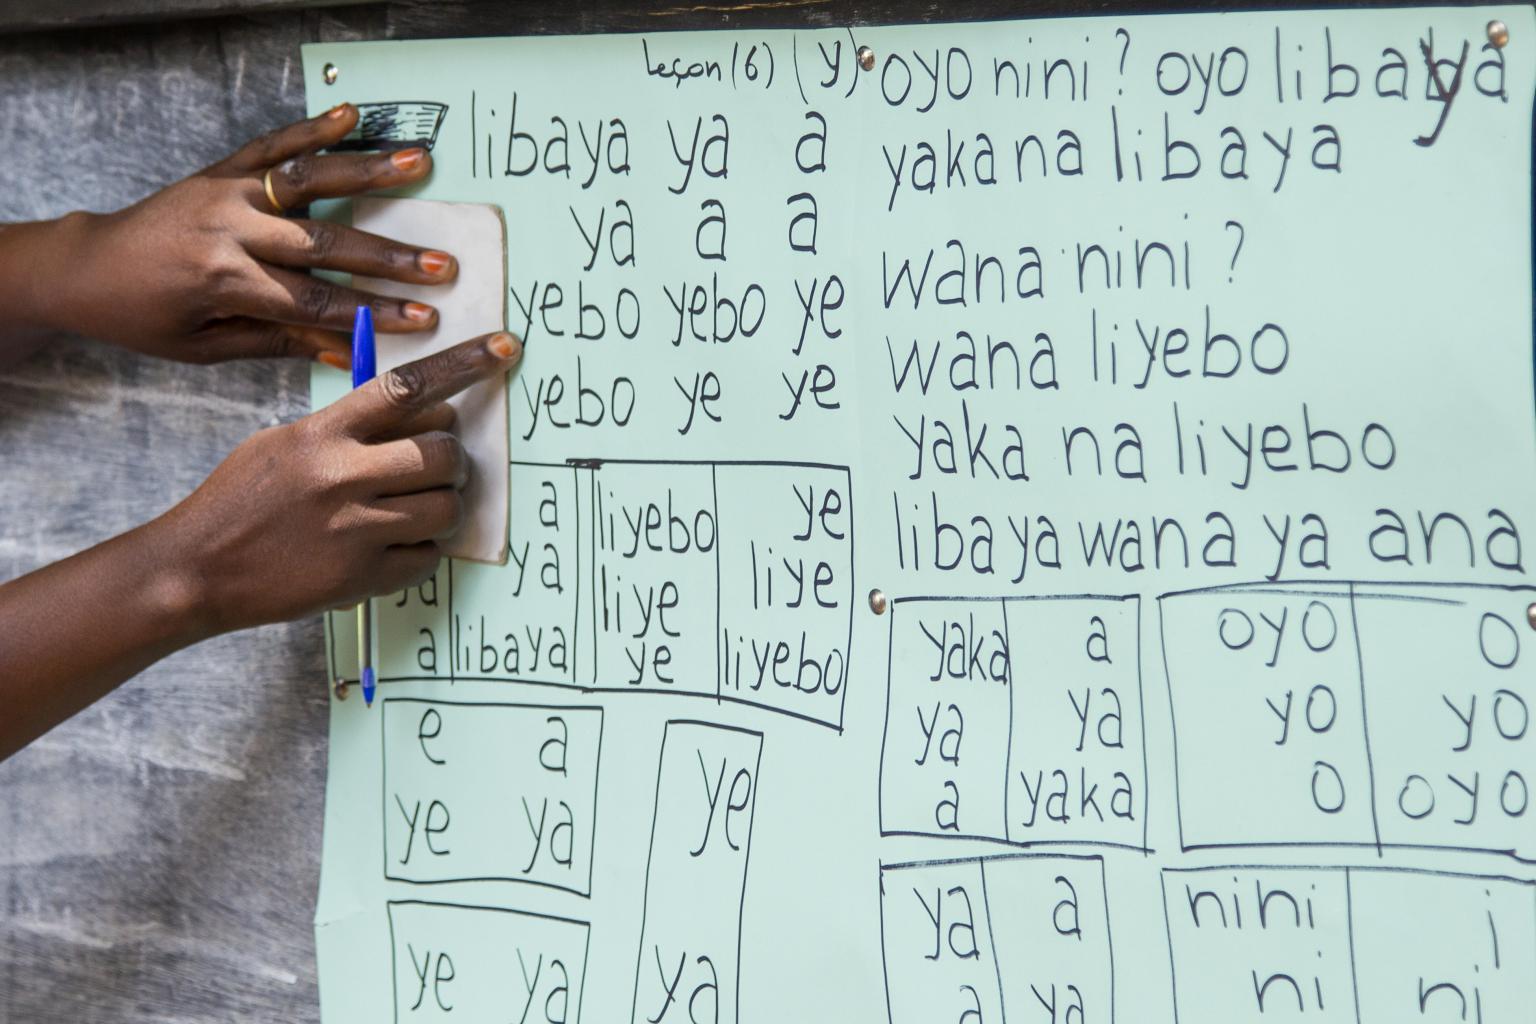 Leçon (6) (y)
libaya ya a
ya a a
yebo yebo ye
yebo ye ye
a
ya
ya
a libaya
liyebo ye
liye liye
ye liyebo
e a
ye ya
ye ya
ye
ya
oyo nini? oyo libaya
yaka na libaya
wana nini?
wana liyebo
yaka na liyebo
libaya wana ya ana
yaka a
ya ya
a yaka
oyo o
yo yo
o oyo
ya a
a ya
nini i
ni ni